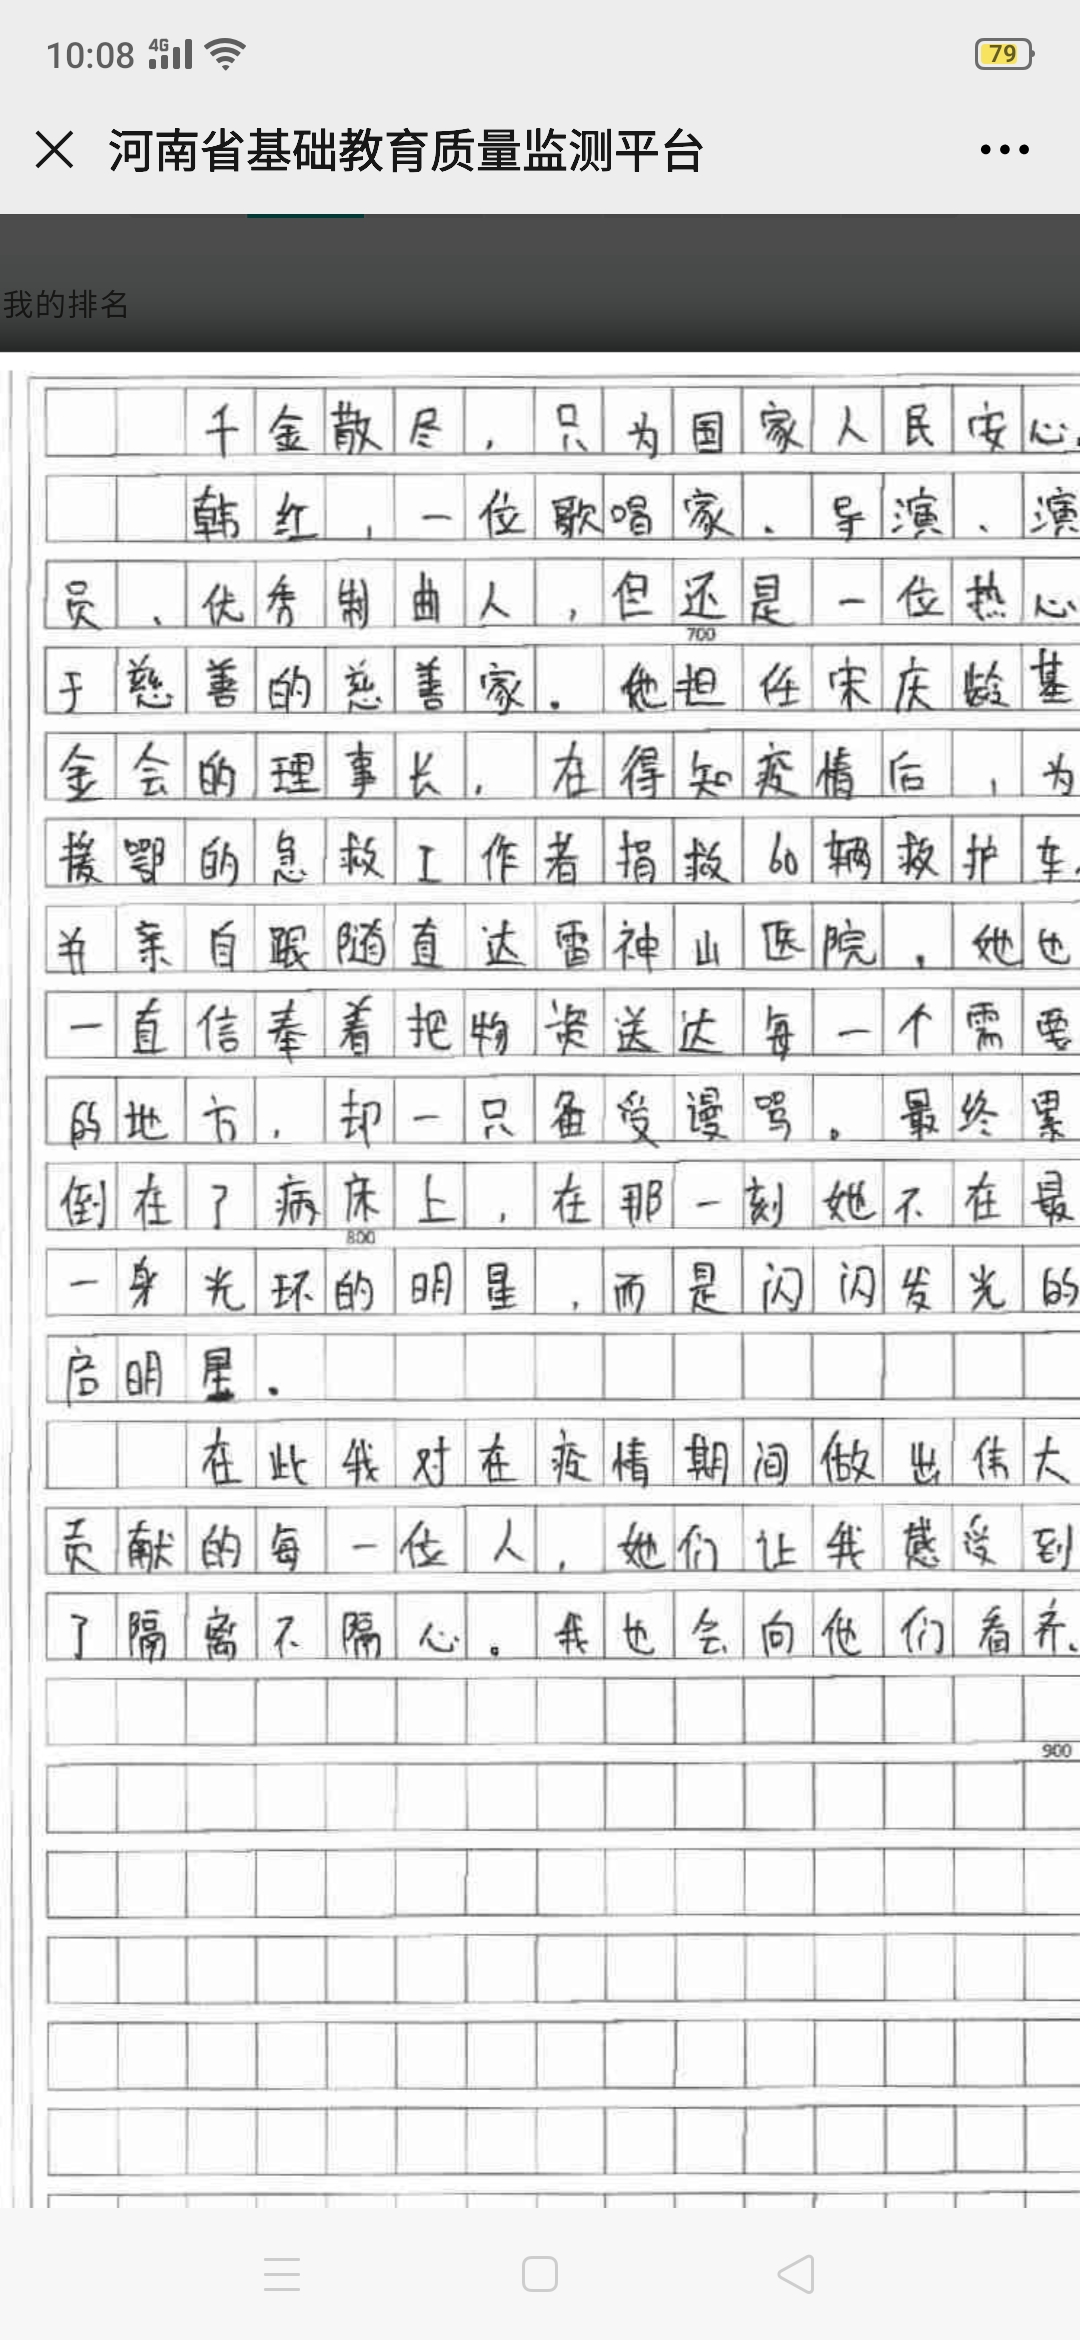 10:08 4G 79
河南省基础教育质量监测平台
我的排名
千金散尽，只为国家人民安心。
韩红，一位歌唱家、导演、演
员、优秀制曲人，但还是一位热心
700
于慈善的慈善家。他担任宋庆龄基
金会的理事长，在得知疫情后，为
援鄂的急救工作者捐救60辆救护车。
并亲自跟随直达雷神山医院，她也
一直信奉着把物资送达每一个需要
的地方，却一只备受谩骂。最终累
倒在了病床上，在那一刻她不在最
800
一身光环的明星，而是闪闪发光的
启明星。
在此我对在疫情期间做出伟大
贡献的每一位人，她们让我感受到
了隔离不隔心。我也会向他们看齐。
900